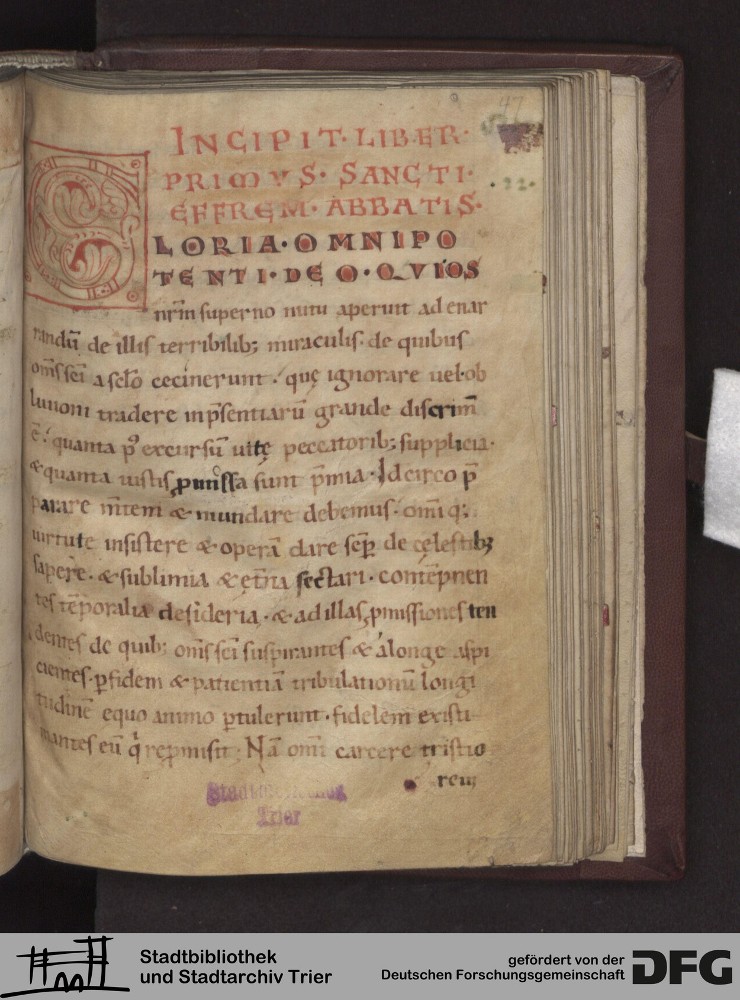 47
INCIPIT · LIBER ·
PRIMVS · SANCTI ·
EFFREM · ABBATIS ·
· 22 ·
GLORIA · OMNIPO
TENTI · DEO · QVI OS
nrm̄ superno nutu aperuit ad enar
randū de illis terribilib; miraculis · de quibus
om̄s sc̄i a sclo cecinerunt · quę ignorare uel ob
liuioni tradere inp̄sentiarū grande discrim̄
ē · quanta p excursū uitę peccatorib; supplicia ·
& quanta iustis ꝓmissa sunt p̄mia · Idcirco p̄
parare m̄tem & mundare debemus · omiq;
uirtute insistere & operā dare sep de cęlestib;
sapere · & sublimia & etna sectari · contēpnen
tes tēporalia desideria · & ad illas ꝓmissiones ten
dentes de quib; om̄s sc̄i suspirantes & a longe aspi
cientes · ꝑ fidem & patientiā tribulationū longi
tudinē equo animo ꝑtulerunt · fidelem existi
mantes eū q repmisit · Nā om̄i carcere tristio
rem
Stadtbibliothek
Trier
Stadtbibliothek
und Stadtarchiv Trier
gefördert von der
Deutschen Forschungsgemeinschaft
DFG